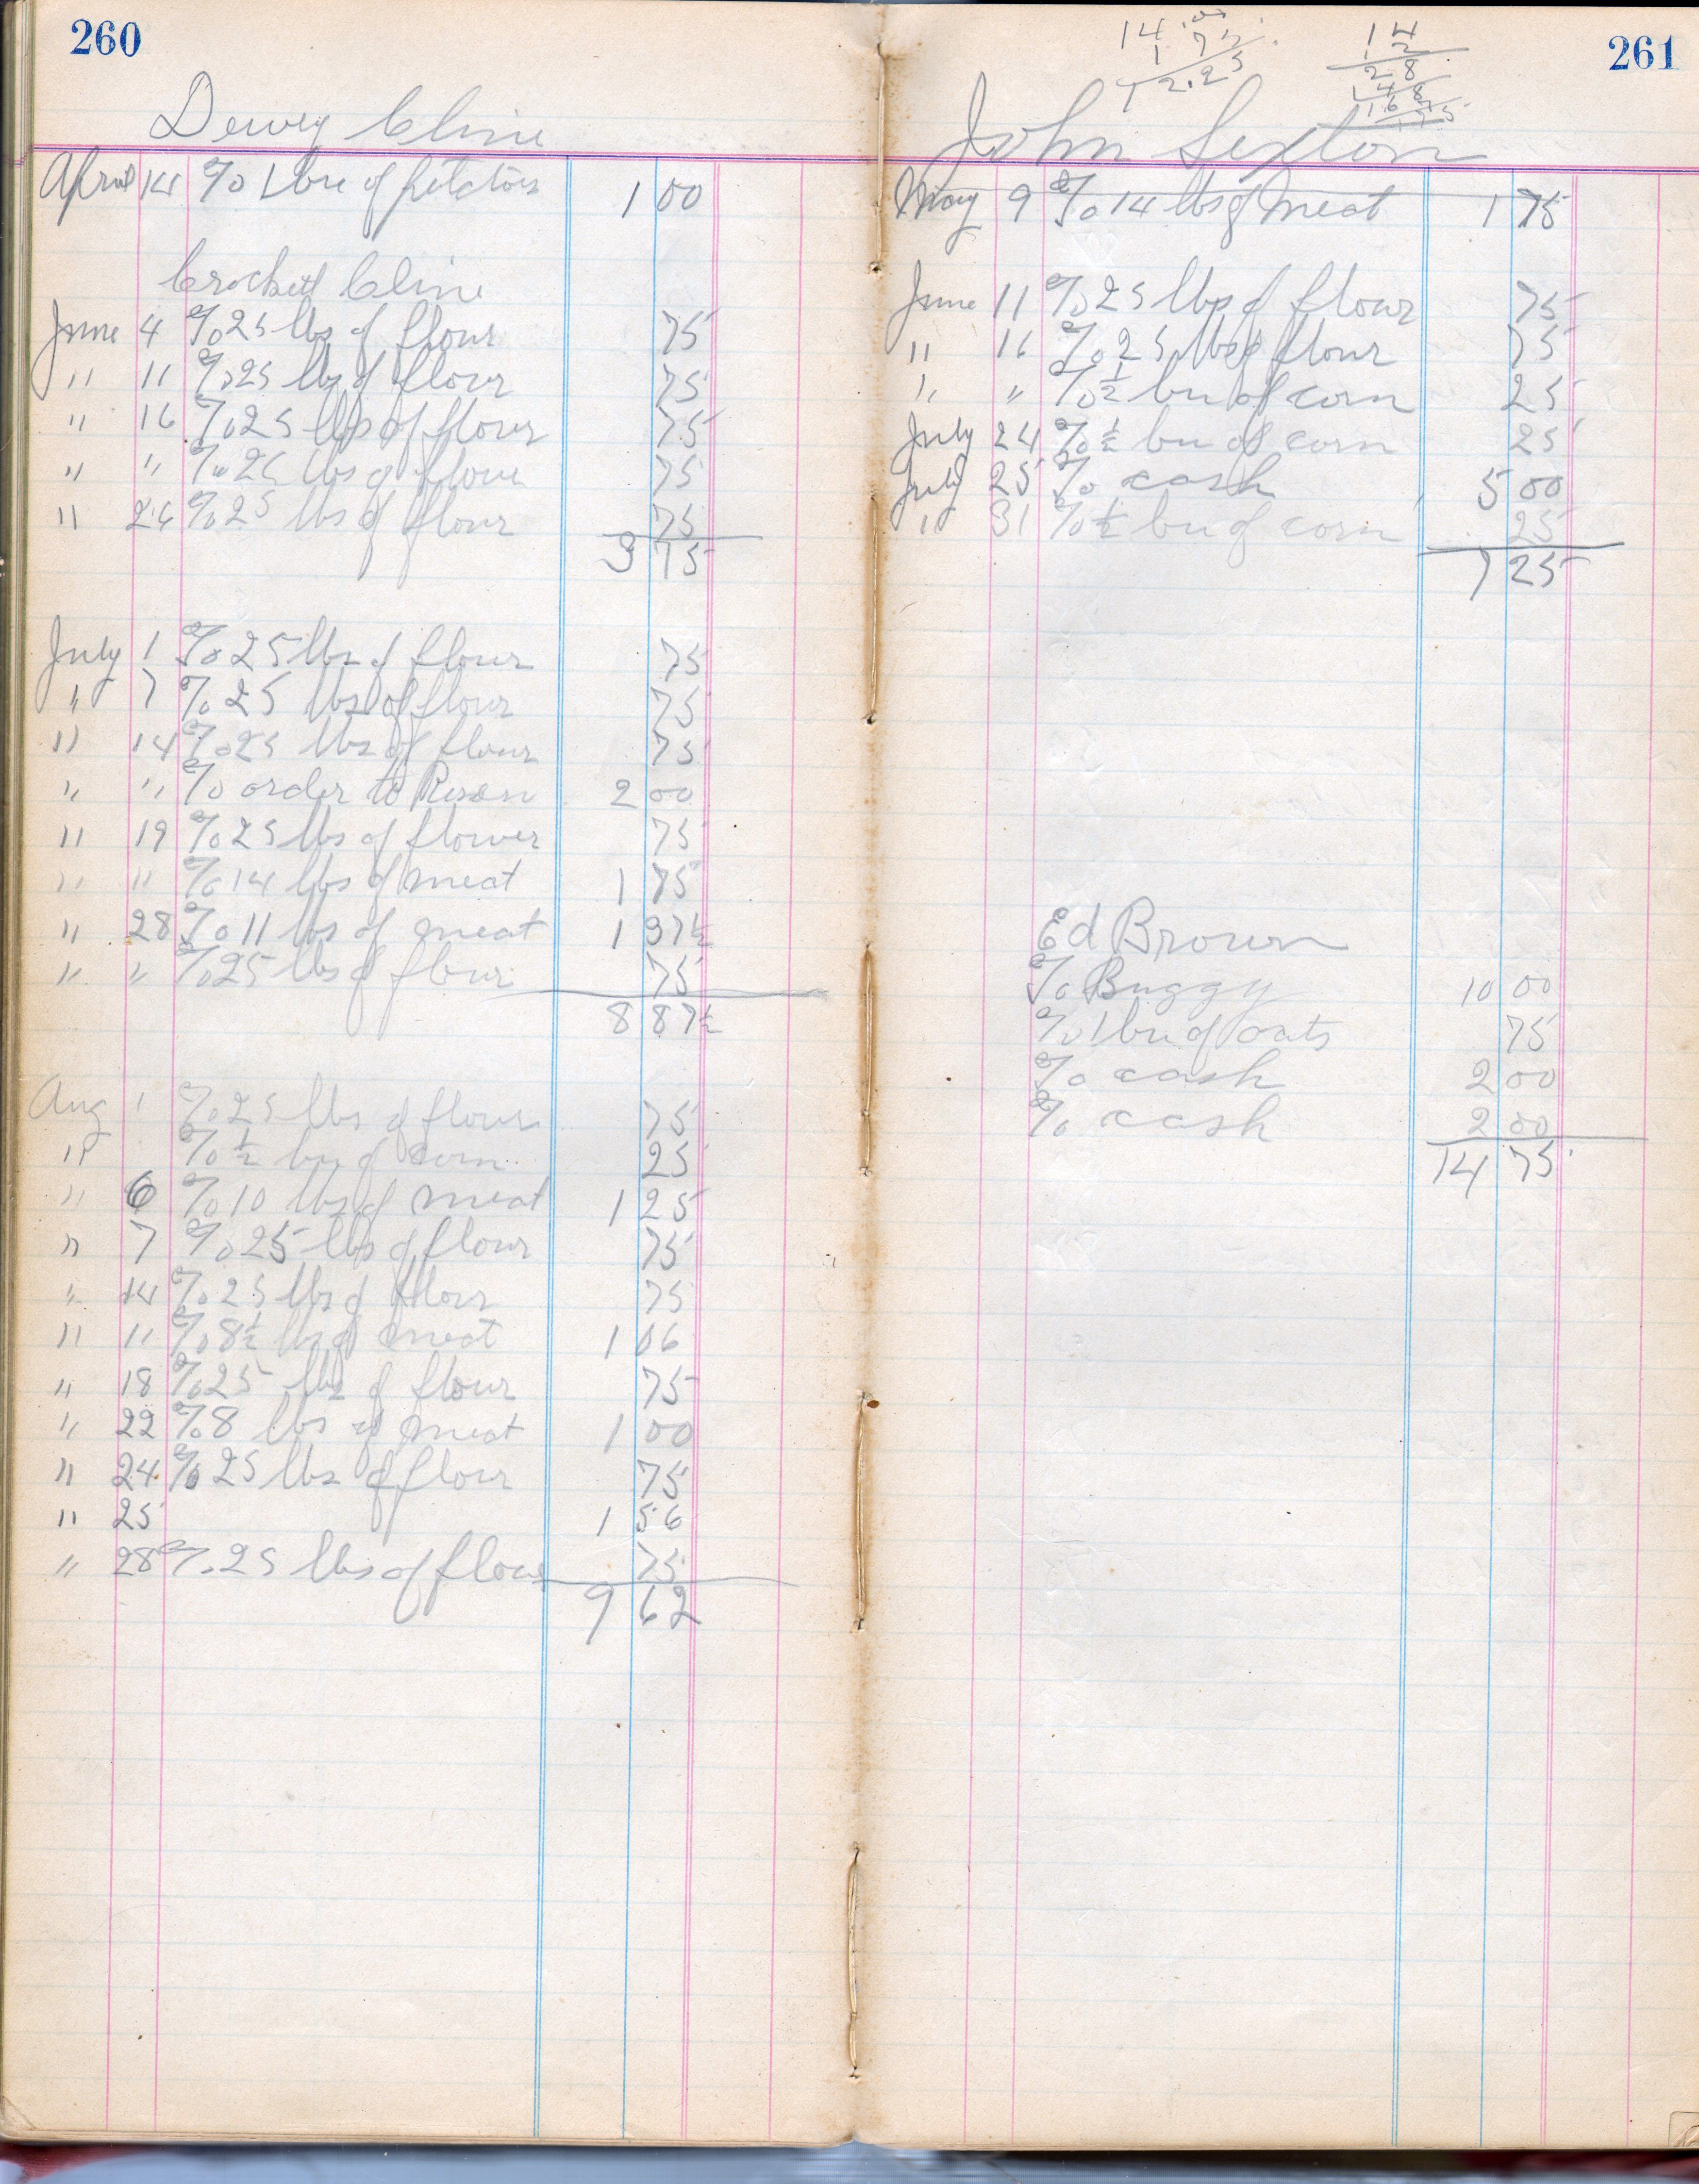 260
Dewey Cline
April 14 % 1 bu of petatoes 1 00
Crockett Cline
June 4 % 25 lbs of flour 75
" 11 % 25 lbs of flour 75
" 16 % 25 lbs of flour 75
" " % 25 lbs of flour 75
" 26 % 25 lbs of flour 75
3 75
July 1 % 25 lbs of flour 75
" 7 % 25 lbs of flour 75
" 14 % 25 lbs of flour 75
" " % order to 2 00
" 19 % 25 lbs of flower 75
" " % 14 lbs of meat 1 75
" 28 % 11 lbs of meat 1 37½
" " % 25 lbs of flour 75
8 87½
Aug 1 % 25 lbs of flour 75
" % ½ bu of corn 25
" 6 % 10 lbs of meat 1 25
" 7 % 25 lbs of flour 75
" 14 % 25 lbs of flour 75
" " % 8½ lbs of meat 1 06
" 18 % 25 lbs of flour 75
" 22 % 8 lbs of meat 1 00
" 24 % 25 lbs of flour 75
" 25 1 56
" 28 % 25 lbs of flour 75
9 62
261
14
14
2
28
John Sexton
May 9 % 14 lbs of meat 1 75
June 11 % 25 lbs of flour 75
" 16 % 25 lbs of flour 75
" " % ½ bu of corn 25
July 24 % ½ bu of corn 25
July 25 % cash 5 00
" 31 % ½ bu of corn 25
7 25
Ed Brown
% Buggy 10 00
% 1 bu of oats 75
% cash 2 00
% cash 2 00
14 75